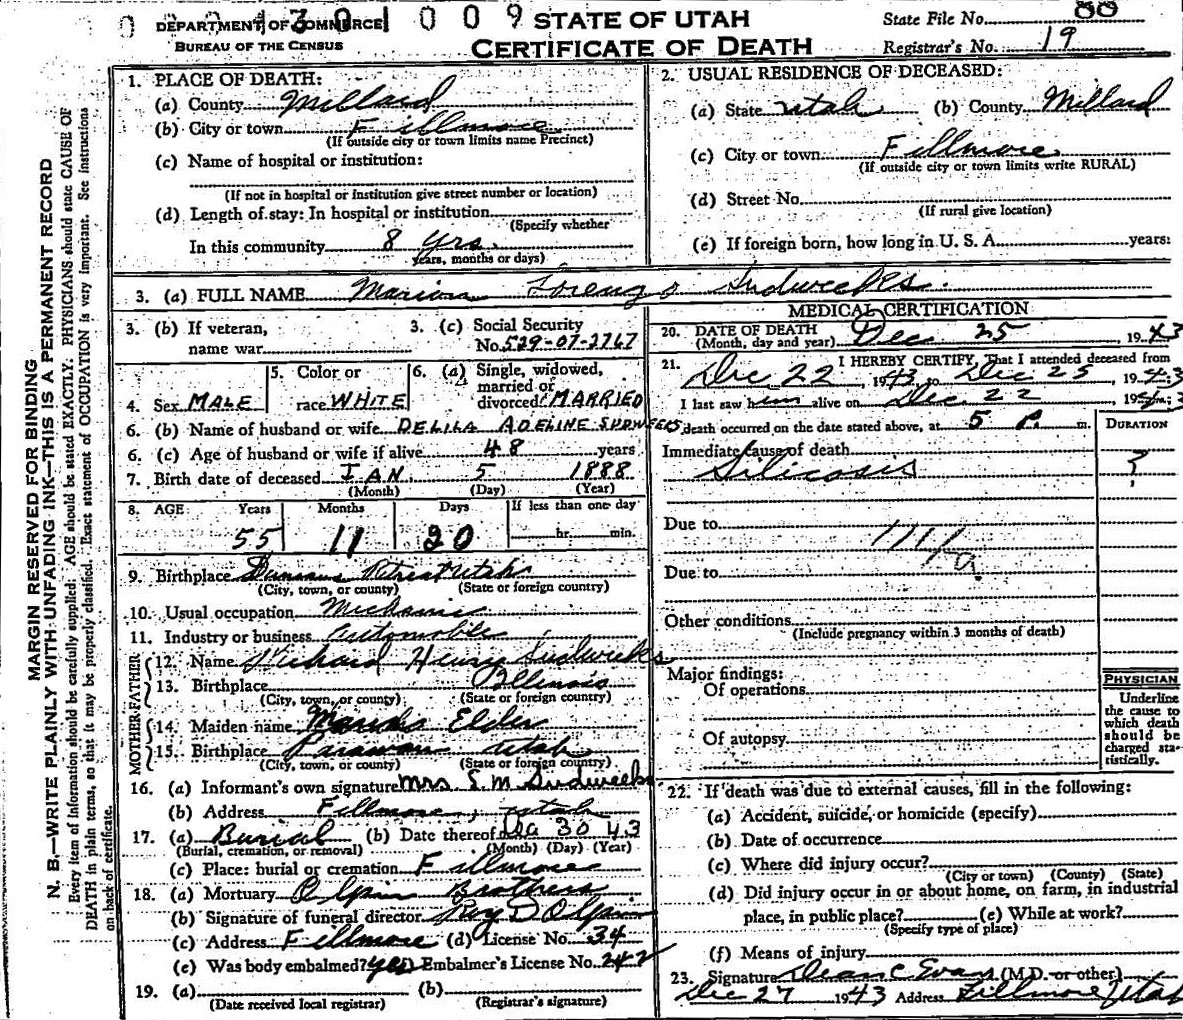 DEPARTMENT OF COMMERCE
BUREAU OF THE CENSUS
STATE OF UTAH
CERTIFICATE OF DEATH
State File No. 88
Registrar's No. 19
MARGIN RESERVED FOR BINDING
N. B.—WRITE PLAINLY WITH UNFADING INK—THIS IS A PERMANENT RECORD
Every item of information should be carefully supplied. AGE should be stated EXACTLY. PHYSICIANS should state CAUSE OF
DEATH in plain terms, so that it may be properly classified. Exact statement of OCCUPATION is very important. See instructions
on back of certificate.
1. PLACE OF DEATH:
(a) County Millard
(b) City or town Fillmore
(If outside city or town limits name Precinct)
(c) Name of hospital or institution:
(If not in hospital or institution give street number or location)
(d) Length of stay: In hospital or institution
(Specify whether
In this community 8 yrs.
years, months or days)
2. USUAL RESIDENCE OF DECEASED:
(a) State Utah (b) County Millard
(c) City or town Fillmore
(If outside city or town limits write RURAL)
(d) Street No.
(If rural give location)
(e) If foreign born, how long in U. S. A. years:
3. (a) FULL NAME Marion Lorenzo Sudweeks.
3. (b) If veteran,
name war
3. (c) Social Security
No. 529-07-2767
4. Sex MALE
5. Color or
race WHITE
6. (a) Single, widowed,
married or
divorced MARRIED
6. (b) Name of husband or wife DELILA ADELINE SUDWEEKS
6. (c) Age of husband or wife if alive 48 years
7. Birth date of deceased JAN. 5 1888
(Month) (Day) (Year)
8. AGE Years Months Days If less than one day
55 11 20 hr. min.
9. Birthplace Utah
(City, town, or county) (State or foreign country)
10. Usual occupation Mechanic
11. Industry or business Automobile
FATHER
12. Name Richard Henry Sudweeks
13. Birthplace Illinois
(City, town, or county) (State or foreign country)
MOTHER
14. Maiden name Elder
15. Birthplace Parawan Utah
(City, town, or county) (State or foreign country)
16. (a) Informant's own signature Mrs. S. M Sudweeks
(b) Address Fillmore, Utah
17. (a) Burial (b) Date thereof 30 43
(Burial, cremation, or removal) (Month) (Day) (Year)
(c) Place: burial or cremation Fillmore
18. (a) Mortuary Olpin Brothers
(b) Signature of funeral director Roy D Olpin
(c) Address Fillmore (d) License No. 34
(e) Was body embalmed? yes Embalmer's License No. 242
19. (a) (b)
(Date received local registrar) (Registrar's signature)
MEDICAL CERTIFICATION
20. DATE OF DEATH
(Month, day and year) Dec 25, 1943
21. I HEREBY CERTIFY, That I attended deceased from
Dec 22, 1943 to Dec 25, 1943
I last saw him alive on Dec 22
death occurred on the date stated above, at 5 P. m.
DURATION
Immediate cause of death
Silicosis ?
Due to
111/a
Due to
Other conditions
(Include pregnancy within 3 months of death)
Major findings:
Of operations
Of autopsy
PHYSICIAN
Underline
the cause to
which death
should be
charged sta-
tistically.
22. If death was due to external causes, fill in the following:
(a) Accident, suicide, or homicide (specify)
(b) Date of occurrence
(c) Where did injury occur?
(City or town) (County) (State)
(d) Did injury occur in or about home, on farm, in industrial
place, in public place? (e) While at work?
(Specify type of place)
(f) Means of injury
23. Signature Dean C Evans (M.D. or other)
Dec 27 1943 Address Fillmore Utah